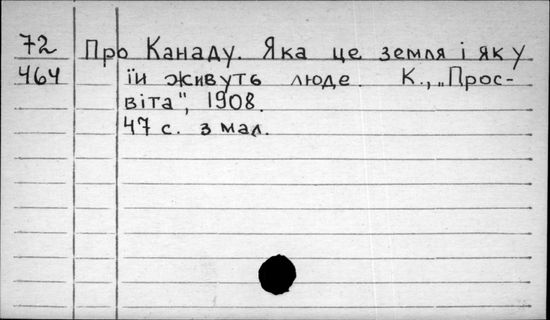 72 Про Канаду. Яка це земля і як у
464 їи живуть люде. К., „Прос-
віта", 1908.
47 с. з мал.